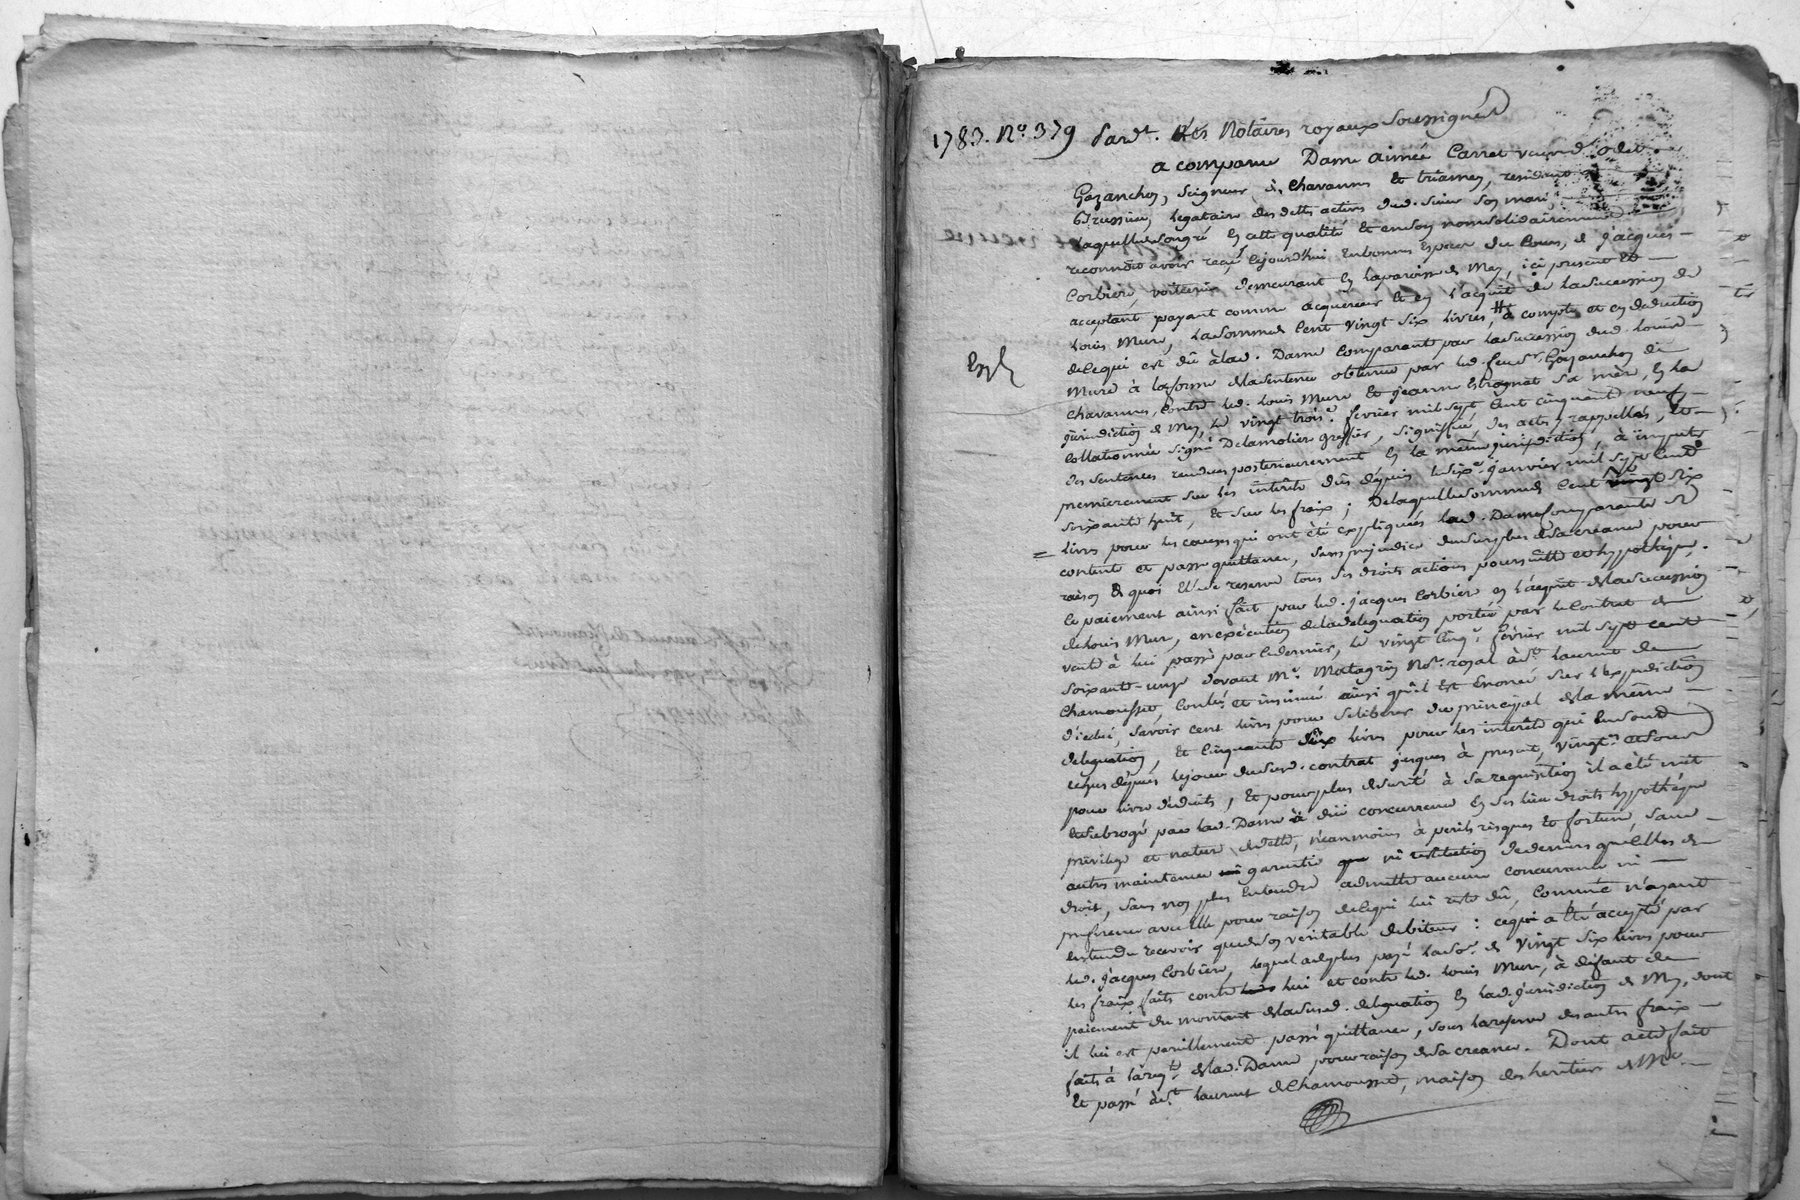 1783. No. 379 Pardt. Les Notaires royaux soussignés
a comparue Dame aimée Carret veuve d'odet
Gazanchon, Seigneur de Chavannes et triamen, residente
a Brussieu, legataire des dettes actives dud. sieur son mari,
laquelle de son gré En cette qualité Et en son nom solidairement
reconnoit avoir reçu cejourdhui En bonnes Especes du Cours, de Jacques
Corbiere, voiturier demeurant En la paroisse de May, ici present Et
acceptant payant comme acquereur Et en l'acquit de la succession de
Louis Mure, la somme de Cent vingt six Livres, à compte et en deduction
de ce qui est dû à lad. Dame Comparante par la succession dud. Louis
Mure à la forme de la sentence obtenue par led. feu Sr. Gazanchon de
Chavannes, Contre led. Louis Mure Et Jeanne Estragnat sa mère, En la
jurisdiction de May, Le vingt trois e. fevrier mil sept Cent Cinquante neuf,
Collationnée signé Delamoliere greffier, signiffiée, des actes y rappellés, Et
des sentences rendues posterieurement En la même jurisdiction, à imputer
premierement sur les interêts dûs depuis le six e. janvier mil sept Cent
soixante huit, et sur les fraix ; De laquelle somme de Cent vingt six
= livres pour les causes qui ont été expliquées lad. Dame Comparante se
contente et passe quittance, sans prejudice du surplus de sa creance pour
raison de quoi Elle se reserve tous ses droits actions poursuitte et hypothèque.
Ce paiement ainsi fait par led. Jacques Corbiere En l'acquit de la succession
de Louis Mure, en execution de la delegation portée par le Contrat de
vente à lui passé par ce dernier, Le vingt Cinq e. fevrier mil sept cent
soixante-onze devant Me. Matagrin Nore. royal à St. Laurent de
Chamousset, Conlé. et insinué ainsi qu'il est Enoncé sur l'expedition
d'icelui, savoir cent livres pour se liberer du principal de la même
delegation, Et Cinquante six livres pour les interêts qui En sont
echus depuis le jour dususd. contrat jusques à present, vingt e. et sol
pour livre déduits, Et pour plus de sureté à sa requisition il a été mis
Et subrogé par lad. Dame à dûe concurrence En ses lieu droits hypothèque
privilege et nature de dette, néanmoins à perils risques Et fortune, sans
autre maintenue garentie ni restitution de deniers quelles de
droit, sans non plus Entendre admettre aucune concurrence ni
preference avec Elle pour raison de ce qui lui reste dû, Comme n'ayant
Entendu recevoir que de son veritable debiteur : ce qui a Eté accepté par
led. Jacques Corbiere, lequel a de plus payé la so e. de vingt six livres pour
les fraix faits contre lui et contre led. Louis Mure, à defaut de
paiement du montant de la susd. delegation En lad. Jurisdiction de May, dont
il lui est pareillement passé quittance, sous la reserve des autres fraix
faits à la reqte. de lad. Dame pour raison de sa creance. Dont acte fait
Et passé à St. Laurent de Chamousset, maison des heritiers de Me.